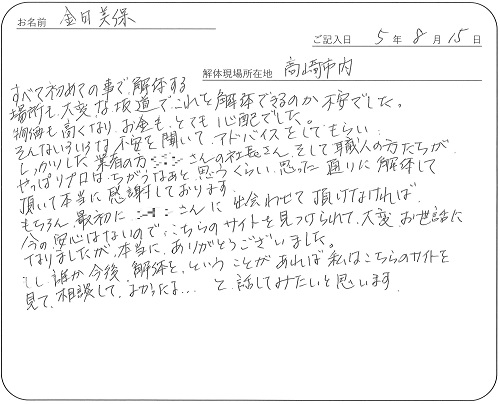 お名前 金井美保
ご記入日 5年 8月 15日
解体現場所在地 高崎市内
すべて初めての事で、解体する
場所も大変な坂道で、これを解体できるのか不安でした。
物価も高くなり、お金も、とても心配でした。
そんないろいろな不安を聞いて、アドバイスをしてもらい、
しっかりした業者の方 さんの社長さん、そして職人の方たちが、
やっぱりプロは、ちがうなあと思うくらい、思った通りに解体して
頂いて本当に感謝しております。
もちろん、最初に さんに出会わせて頂けなければ、
今の安心はないので、こちらのサイトを見つけられて、大変お世話に
なりましたが、本当に、ありがとうございました。
もし、誰か今後、解体を、ということがあれば私はこちらのサイトを
見て、相談して、よかったよ... と、話してみたいと思います。